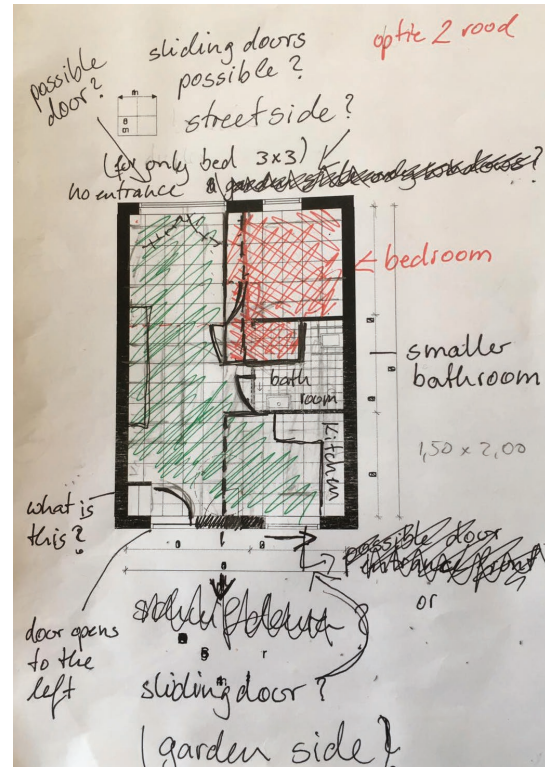 optie 2 rood
sliding doors
possible?
possible
door?
street side?
(for only bed 3x3)
no entrance
bedroom
smaller
bathroom
bath
room
Kitchen
1,50 x 2,00
what is
this?
possible door
entrance front
or
door opens
to the
left
sliding door?
(garden side)